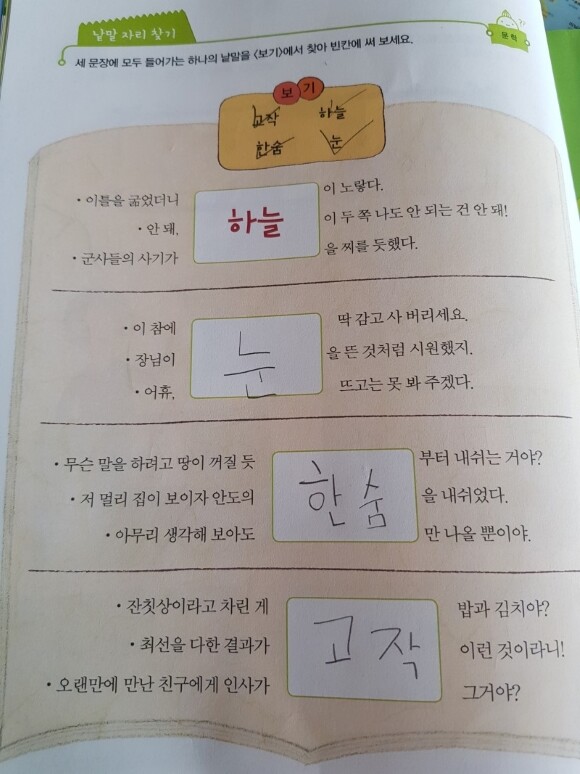 낱말 자리 찾기
문학
세 문장에 모두 들어가는 하나의 낱말을 <보기>에서 찾아 빈칸에 써 보세요.
보기
고작 하늘
한숨 눈
• 이틀을 굶었더니 이 노랗다.
• 안 돼, 하늘 이 두 쪽 나도 안 되는 건 안 돼!
• 군사들의 사기가 을 찌를 듯했다.
• 이 참에 딱 감고 사 버리세요.
• 장님이 눈 을 뜬 것처럼 시원했지.
• 어휴, 뜨고는 못 봐 주겠다.
• 무슨 말을 하려고 땅이 꺼질 듯 부터 내쉬는 거야?
• 저 멀리 집이 보이자 안도의 한숨 을 내쉬었다.
• 아무리 생각해 보아도 만 나올 뿐이야.
• 잔칫상이라고 차린 게 밥과 김치야?
• 최선을 다한 결과가 고작 이런 것이라니!
• 오랜만에 만난 친구에게 인사가 그거야?